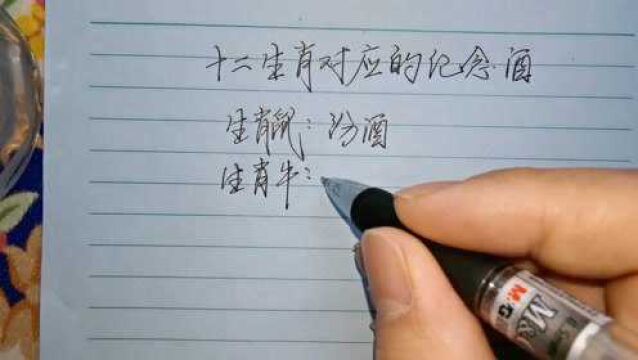 十二生肖对应的纪念酒
生肖鼠：汾酒
生肖牛：
M&G